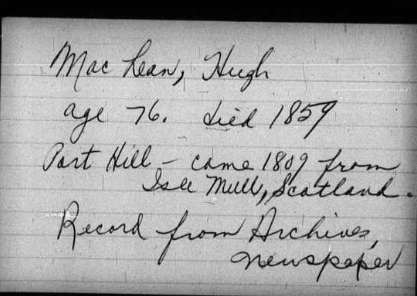 Mac Lean, Hugh
age 76. died 1859
Port Hill - came 1809 from
Isle Mull, Scotland.
Record from Archives,
newspaper